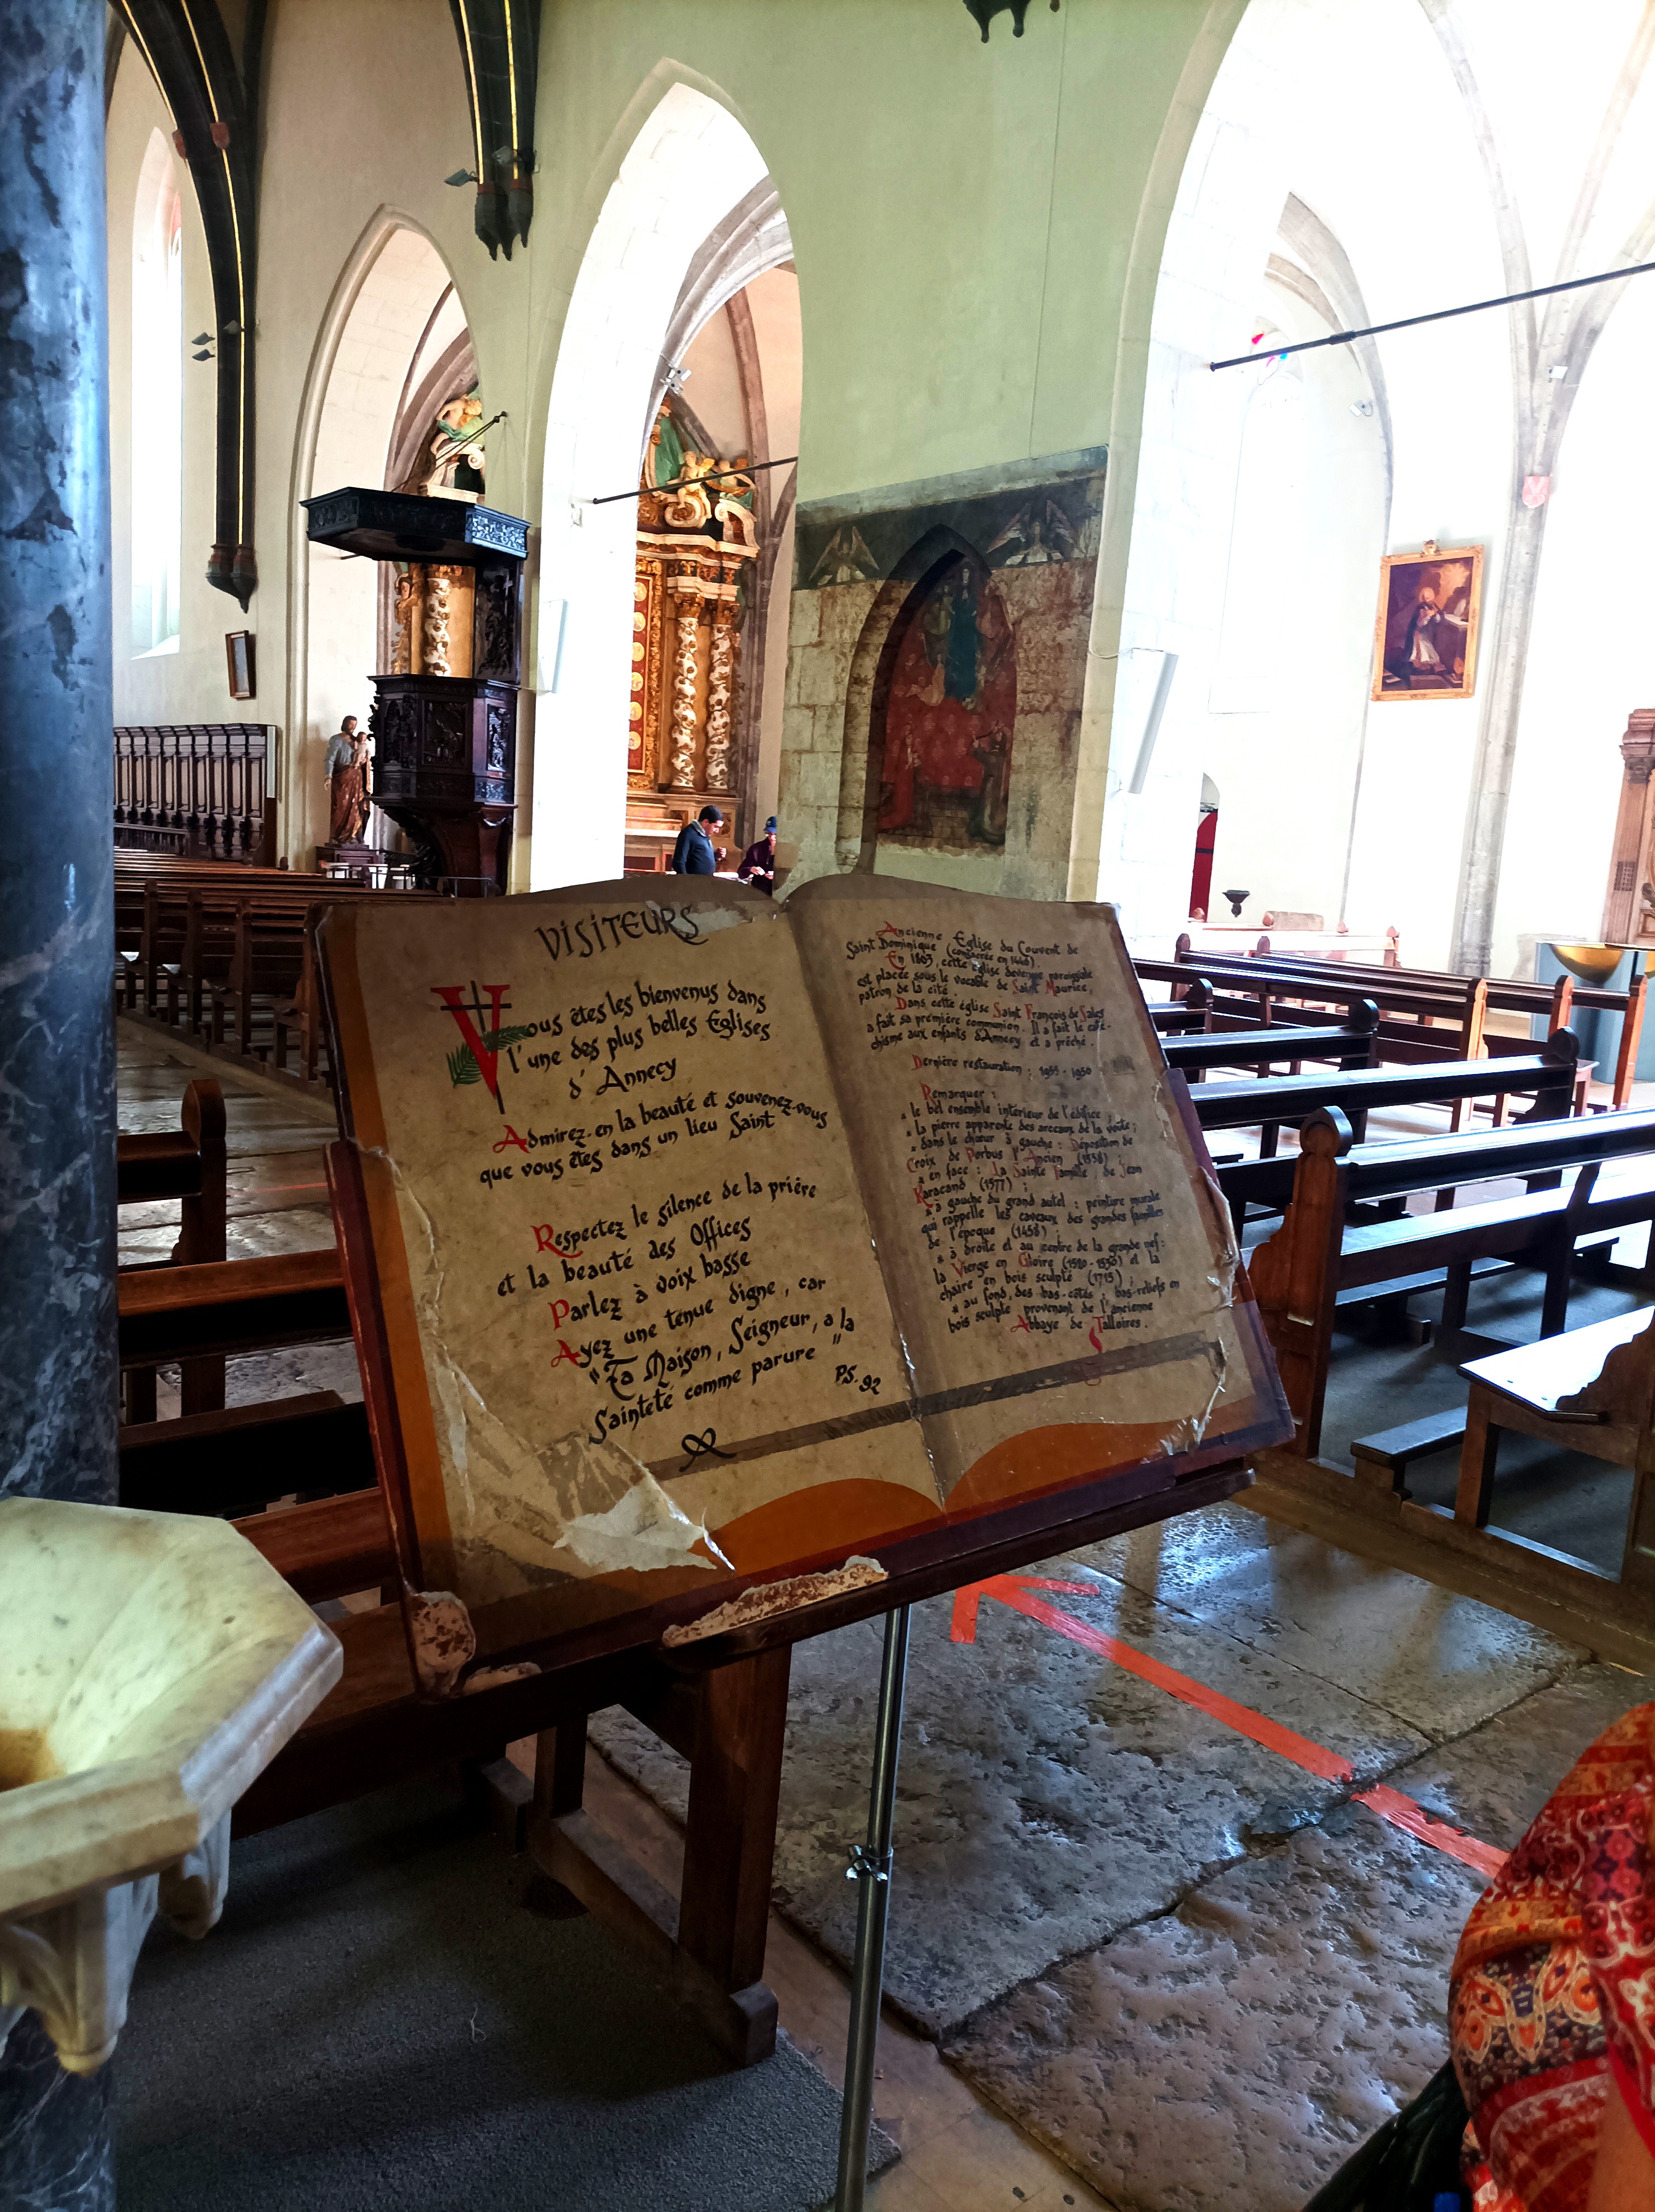 VISITEURS
Vous êtes les bienvenus dans
l'une des plus belles Eglises
d'Annecy
Admirez-en la beauté et souvenez-vous
que vous êtes dans un lieu Saint
Respectez le silence de la prière
et la beauté des Offices
Parlez à voix basse
Ayez une tenue digne, car
"Ta Maison, Seigneur, a la
Sainteté comme parure"
PS. 92
Ancienne Eglise du Couvent de
Saint Dominique (consacrée en 1445).
En 1803, cette église devenue paroissiale
est placée sous le vocable de Saint Maurice,
patron de la cité.
Dans cette église Saint François de Sales
a fait sa première communion. Il a fait le caté-
chisme aux enfants d'Annecy et a prêché.
Dernière restauration : 1955 - 1950
Remarquer :
le bel ensemble intérieur de l'édifice ;
la pierre apparente des arceaux de la voûte ;
dans le chœur à gauche : Déposition de
Croix de Porbus l'Ancien (1558) ;
en face : la Sainte Famille, de Jean
Karacand (1577) ;
à gauche du grand autel : peinture murale
qui rappelle les caveaux des grandes familles
de l'époque (1458) ;
à droite et au centre de la grande nef :
la Vierge en Gloire et la
chaire en bois sculpté (1715) ;
au fond, des bas-côtés, bas-reliefs en
bois sculpté provenant de l'ancienne
Abbaye de Talloires.